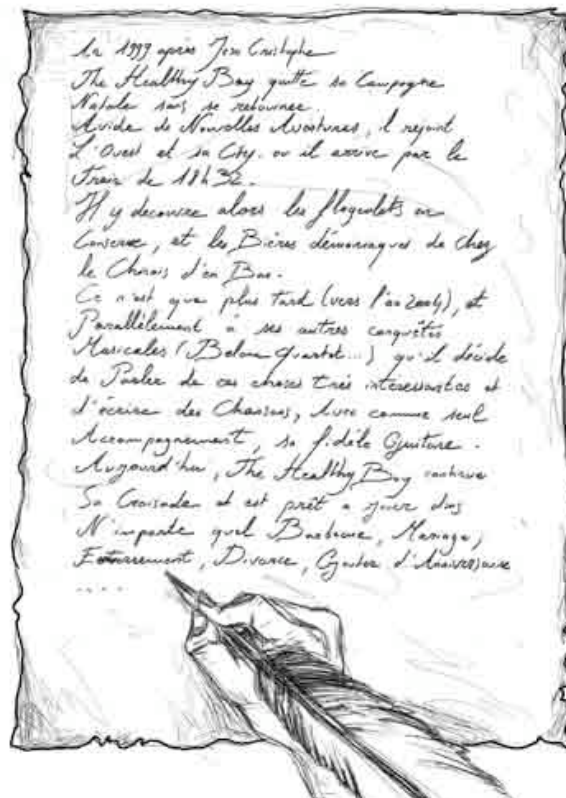 En 1999 après Jésu Cristophe
The Healthy Boy quitte sa Campagne
Natale sans se retourner.
Avide de Nouvelles Aventures, il rejoint
L'Ouest et sa City. ou il arrive par le
Train de 18h32.
Il y decouvre alors les flageolets en
Conserve, et les Bières démoniaques de chez
le Chinois d'en Bas.
Ce n'est que plus tard (vers l'an 2004), et
Parallèlement à ses autres conquêtes
Musicales (Belone Quartet...) qu'il décide
de Parler de ces choses très interessantes et
d'écrire des Chansons, Avec comme seul
Accompagnement, sa fidèle Guitare.
Aujourd'hui, The Healthy Boy continue
Sa Croisade et est prêt a jouer dans
N'importe quel Barbecue, Mariage,
Enterrement, Divorce, Gouter d'Anniversaire
....